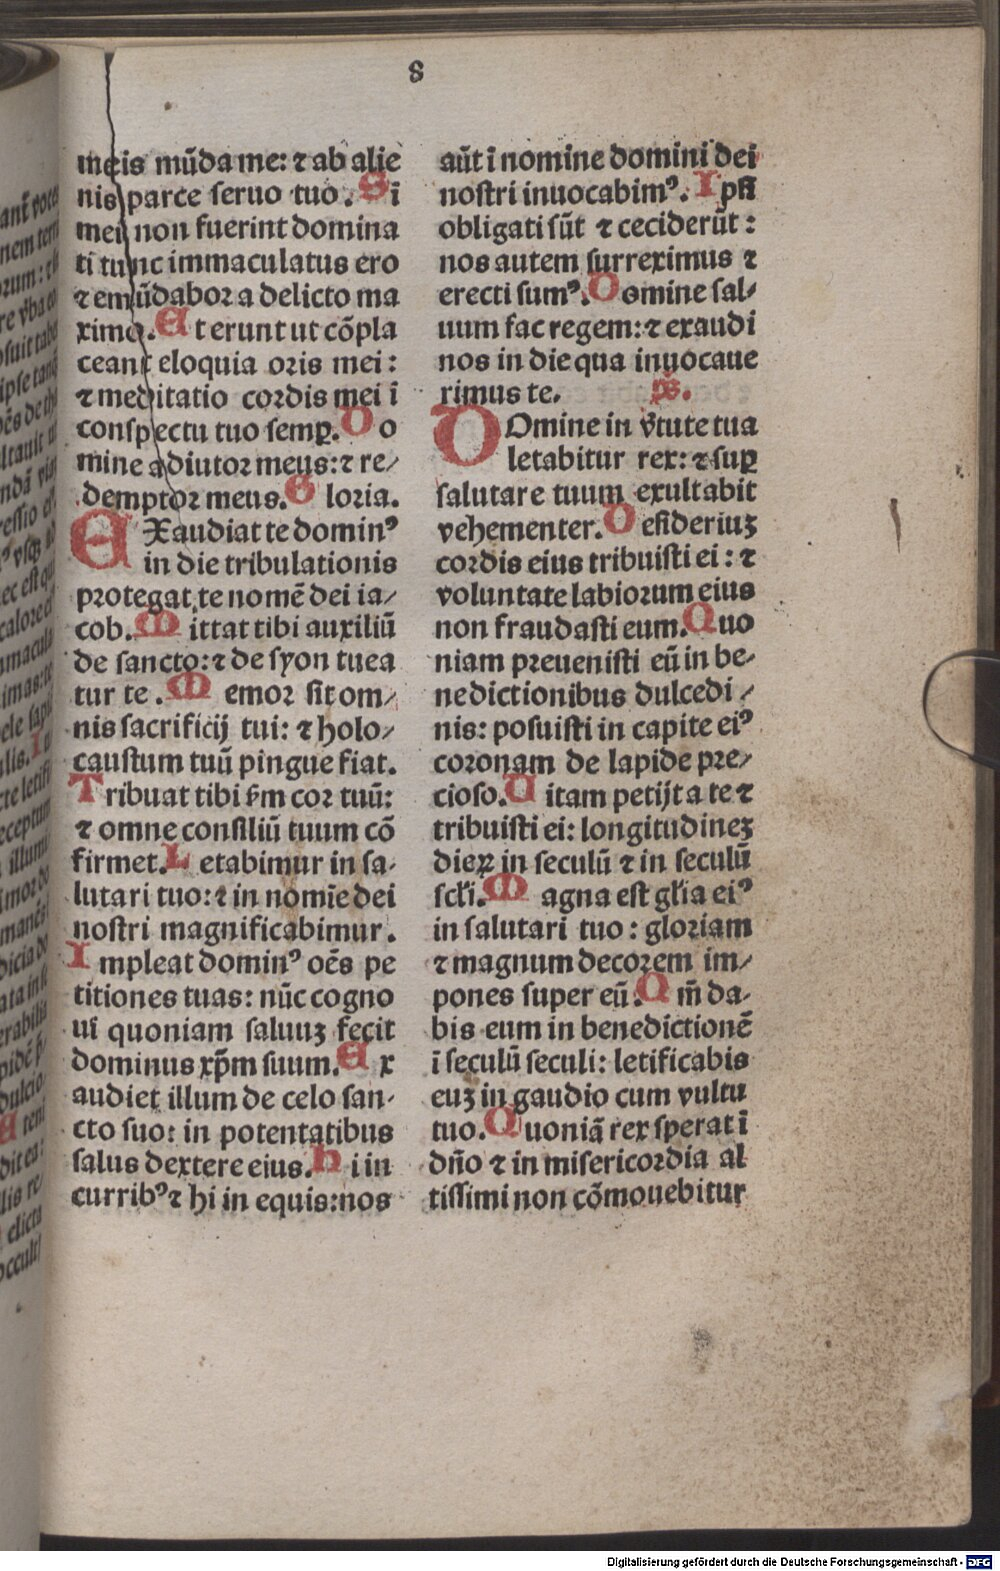 8
meis mūda me: ⁊ ab alie
nis parce seruo tuo. Si ī
mei non fuerint domina
ti tunc immaculatus ero
⁊ emūdabor a delicto ma
ximo. Et erunt ut cōpla
ceant eloquia oris mei:
⁊ meditatio cordis mei ī
conspectu tuo semꝑ. Do
mine adiutor meus: ⁊ re⸗
demptor meus. Gloria.
EXaudiat te dominꝰ
in die tribulationis
protegat te nomē dei ia⸗
cob. Mittat tibi auxiliū
de sancto: ⁊ de syon tuea
tur te. Memor sit om⸗
nis sacrificij tui: ⁊ holo⸗
caustum tuū pingue fiat.
Tribuat tibi ẜm cor tuū:
⁊ omne consiliū tuum cō
firmet. Letabimur in sa⸗
lutari tuo: ⁊ in nomīe dei
nostri magnificabimur.
Impleat dominꝰ oēs pe
titiones tuas: nūc cogno
ui quoniam saluuꝫ fecit
dominus xp̄m suum. Ex
audiet illum de celo san⸗
cto suo: in potentatibus
salus dextere eius. Hi in
curribꝰ ⁊ hi in equis: nos
aūt ī nomine domini dei
nostri inuocabimꝰ. Ipsi
obligati sūt ⁊ ceciderūt:
nos autem surreximus ⁊
erecti sumꝰ. Domine sal⸗
uum fac regem: ⁊ exaudi
nos in die qua inuocaue
rimus te. ps.
DOmine in v̄tute tua
letabitur rex: ⁊ suꝑ
salutare tuum exultabit
vehementer. Desideriuꝫ
cordis eius tribuisti ei: ⁊
voluntate labiorum eius
non fraudasti eum. Quo
niam preuenisti eū in be⸗
nedictionibus dulcedi⸗
nis: posuisti in capite eiꝰ
coronam de lapide pre⸗
cioso. Uitam petijt a te ⁊
tribuisti ei: longitudineꝫ
dieꝝ in seculū ⁊ in seculū
scl̄i. Magna est gl̄ia eiꝰ
in salutari tuo: gloriam
⁊ magnum decorem im⸗
pones super eū. Qm̄ da⸗
bis eum in benedictionē
ī seculū seculi: letificabis
euꝫ in gaudio cum vultu
tuo. Quoniā rex sperat ī
dn̄o ⁊ in misericordia al
tissimi non cōmouebitur
Digitalisierung gefördert durch die Deutsche Forschungsgemeinschaft - DFG